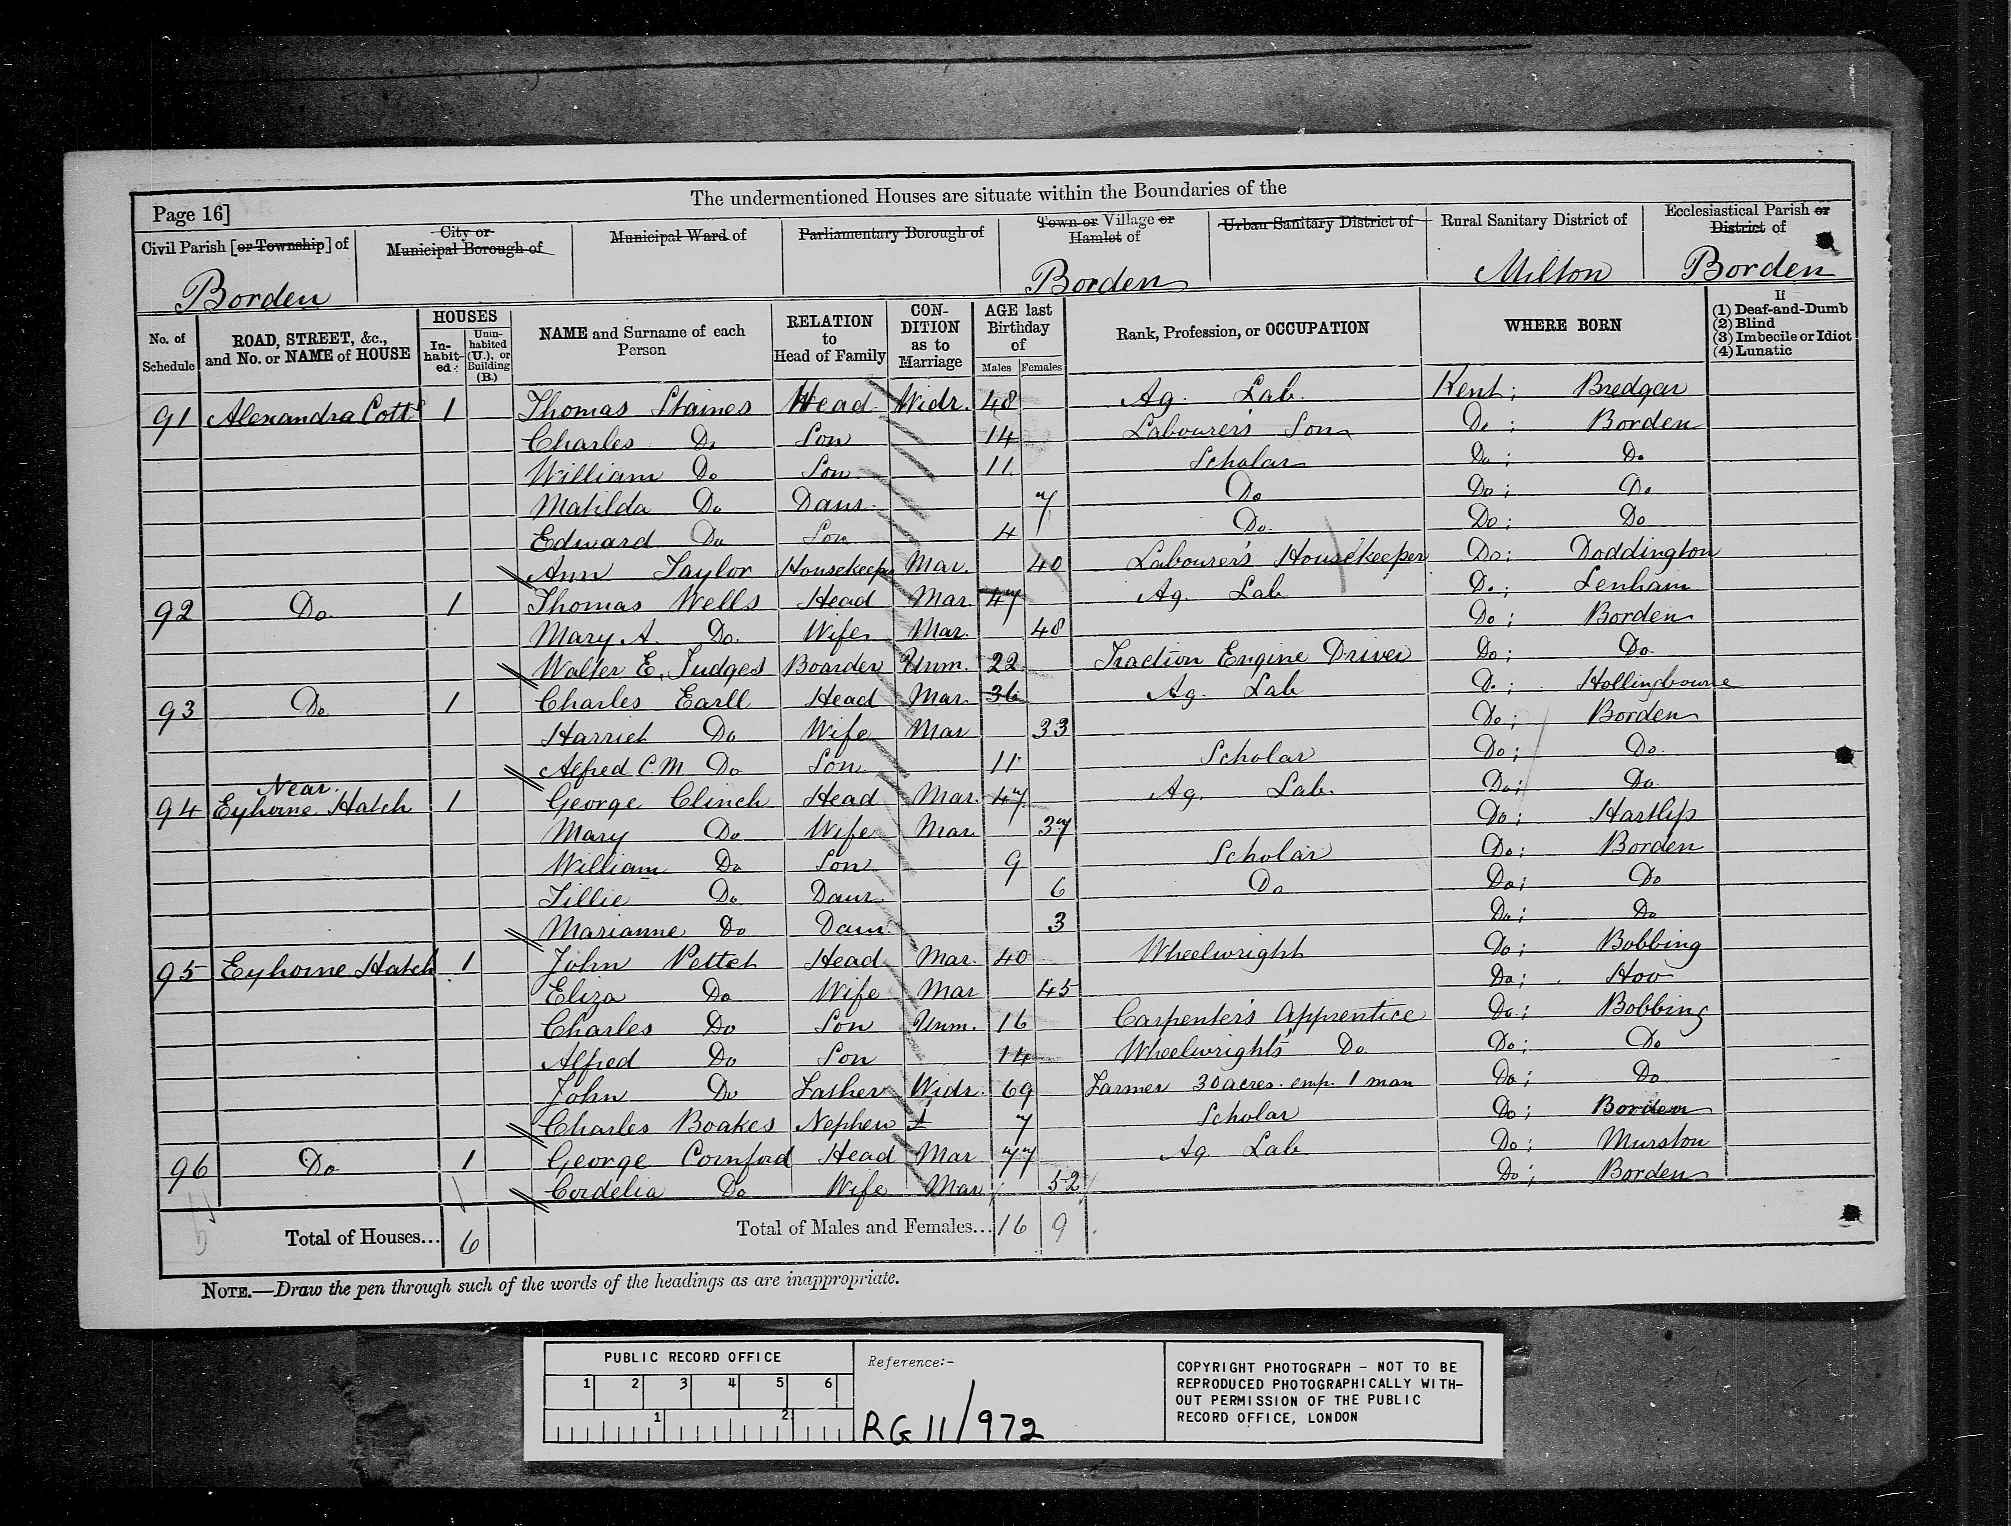 The undermentioned Houses are situate within the Boundaries of the
Page 16]
Civil Parish [or Township] of
City or Municipal Borough of
Municipal Ward of
Parliamentary Borough of
Town or Village or Hamlet of
Urban Sanitary District of
Rural Sanitary District of
Ecclesiastical Parish or District of
Borden Borden Milton Borden
No. of Schedule
ROAD, STREET, &c., and No. or NAME of HOUSE
HOUSES
In-habit-ed
Unin-habited (U.), or Building (B.)
NAME and Surname of each Person
RELATION to Head of Family
CON-DITION as to Marriage
AGE last Birthday of
Males Females
Rank, Profession, or OCCUPATION
WHERE BORN
If
(1) Deaf-and-Dumb
(2) Blind
(3) Imbecile or Idiot
(4) Lunatic
91 Alexandra Cotts 1 Thomas Staines Head Widr. 48 Ag. Lab. Kent; Bredgar
Charles Do Son 14 Labourer's Son Do; Borden
William Do Son 11 Scholar Do; Do
Matilda Do Daur. 7 Do Do; Do
Edward Do Son 4 Do. Do; Do
Ann Taylor Housekeeper Mar. 40 Labourer's Housekeeper Do; Doddington
92 Do. 1 Thomas Wells Head Mar. 47 Ag. Lab Do; Lenham
Mary A. Do. Wife Mar. 48 Do; Borden
Walter E. Judges Boarder Unm. 22 Traction Engine Driver Do; Do.
93 Do 1 Charles Earll Head Mar. 36 Ag. Lab Do; Hollingbourne
Harriet Do Wife Mar 33 Do; Borden
Alfred C. M. Do Son 11 Scholar Do; Do.
94 Near Eyhorne Hatch 1 George Clinch Head Mar. 47 Ag. Lab. Do; Do.
Mary Do Wife Mar. 37 Do; Hartlip
William Do Son 9 Scholar Do; Borden
Tillie Do. Daur. 6 Do Do; Do
Marianne Do Daur 3 Do; Do
95 Eyhorne Hatch 1 John Pettet Head Mar. 40 Wheelwright Do; Bobbing
Eliza Do Wife Mar 45 Do; Hoo
Charles Do Son Unm. 16 Carpenter's Apprentice Do; Bobbing
Alfred Do Son 14 Wheelwright's Do. Do; Do
John Do Father Widr. 69 Farmer 30 acres. emp. 1 man Do; Do
Charles Boakes Nephew 7 Scholar Do; Borden
96 Do 1 George Cornford Head Mar 77 Ag Lab Do; Murston
Cordelia Do Wife Mar 52 Do; Borden
Total of Houses... 6 Total of Males and Females... 16 9
NOTE.—Draw the pen through such of the words of the headings as are inappropriate.
PUBLIC RECORD OFFICE
1 2 3 4 5 6
1 2
Reference:-
RG 11/972
COPYRIGHT PHOTOGRAPH - NOT TO BE
REPRODUCED PHOTOGRAPHICALLY WITH-
OUT PERMISSION OF THE PUBLIC
RECORD OFFICE, LONDON